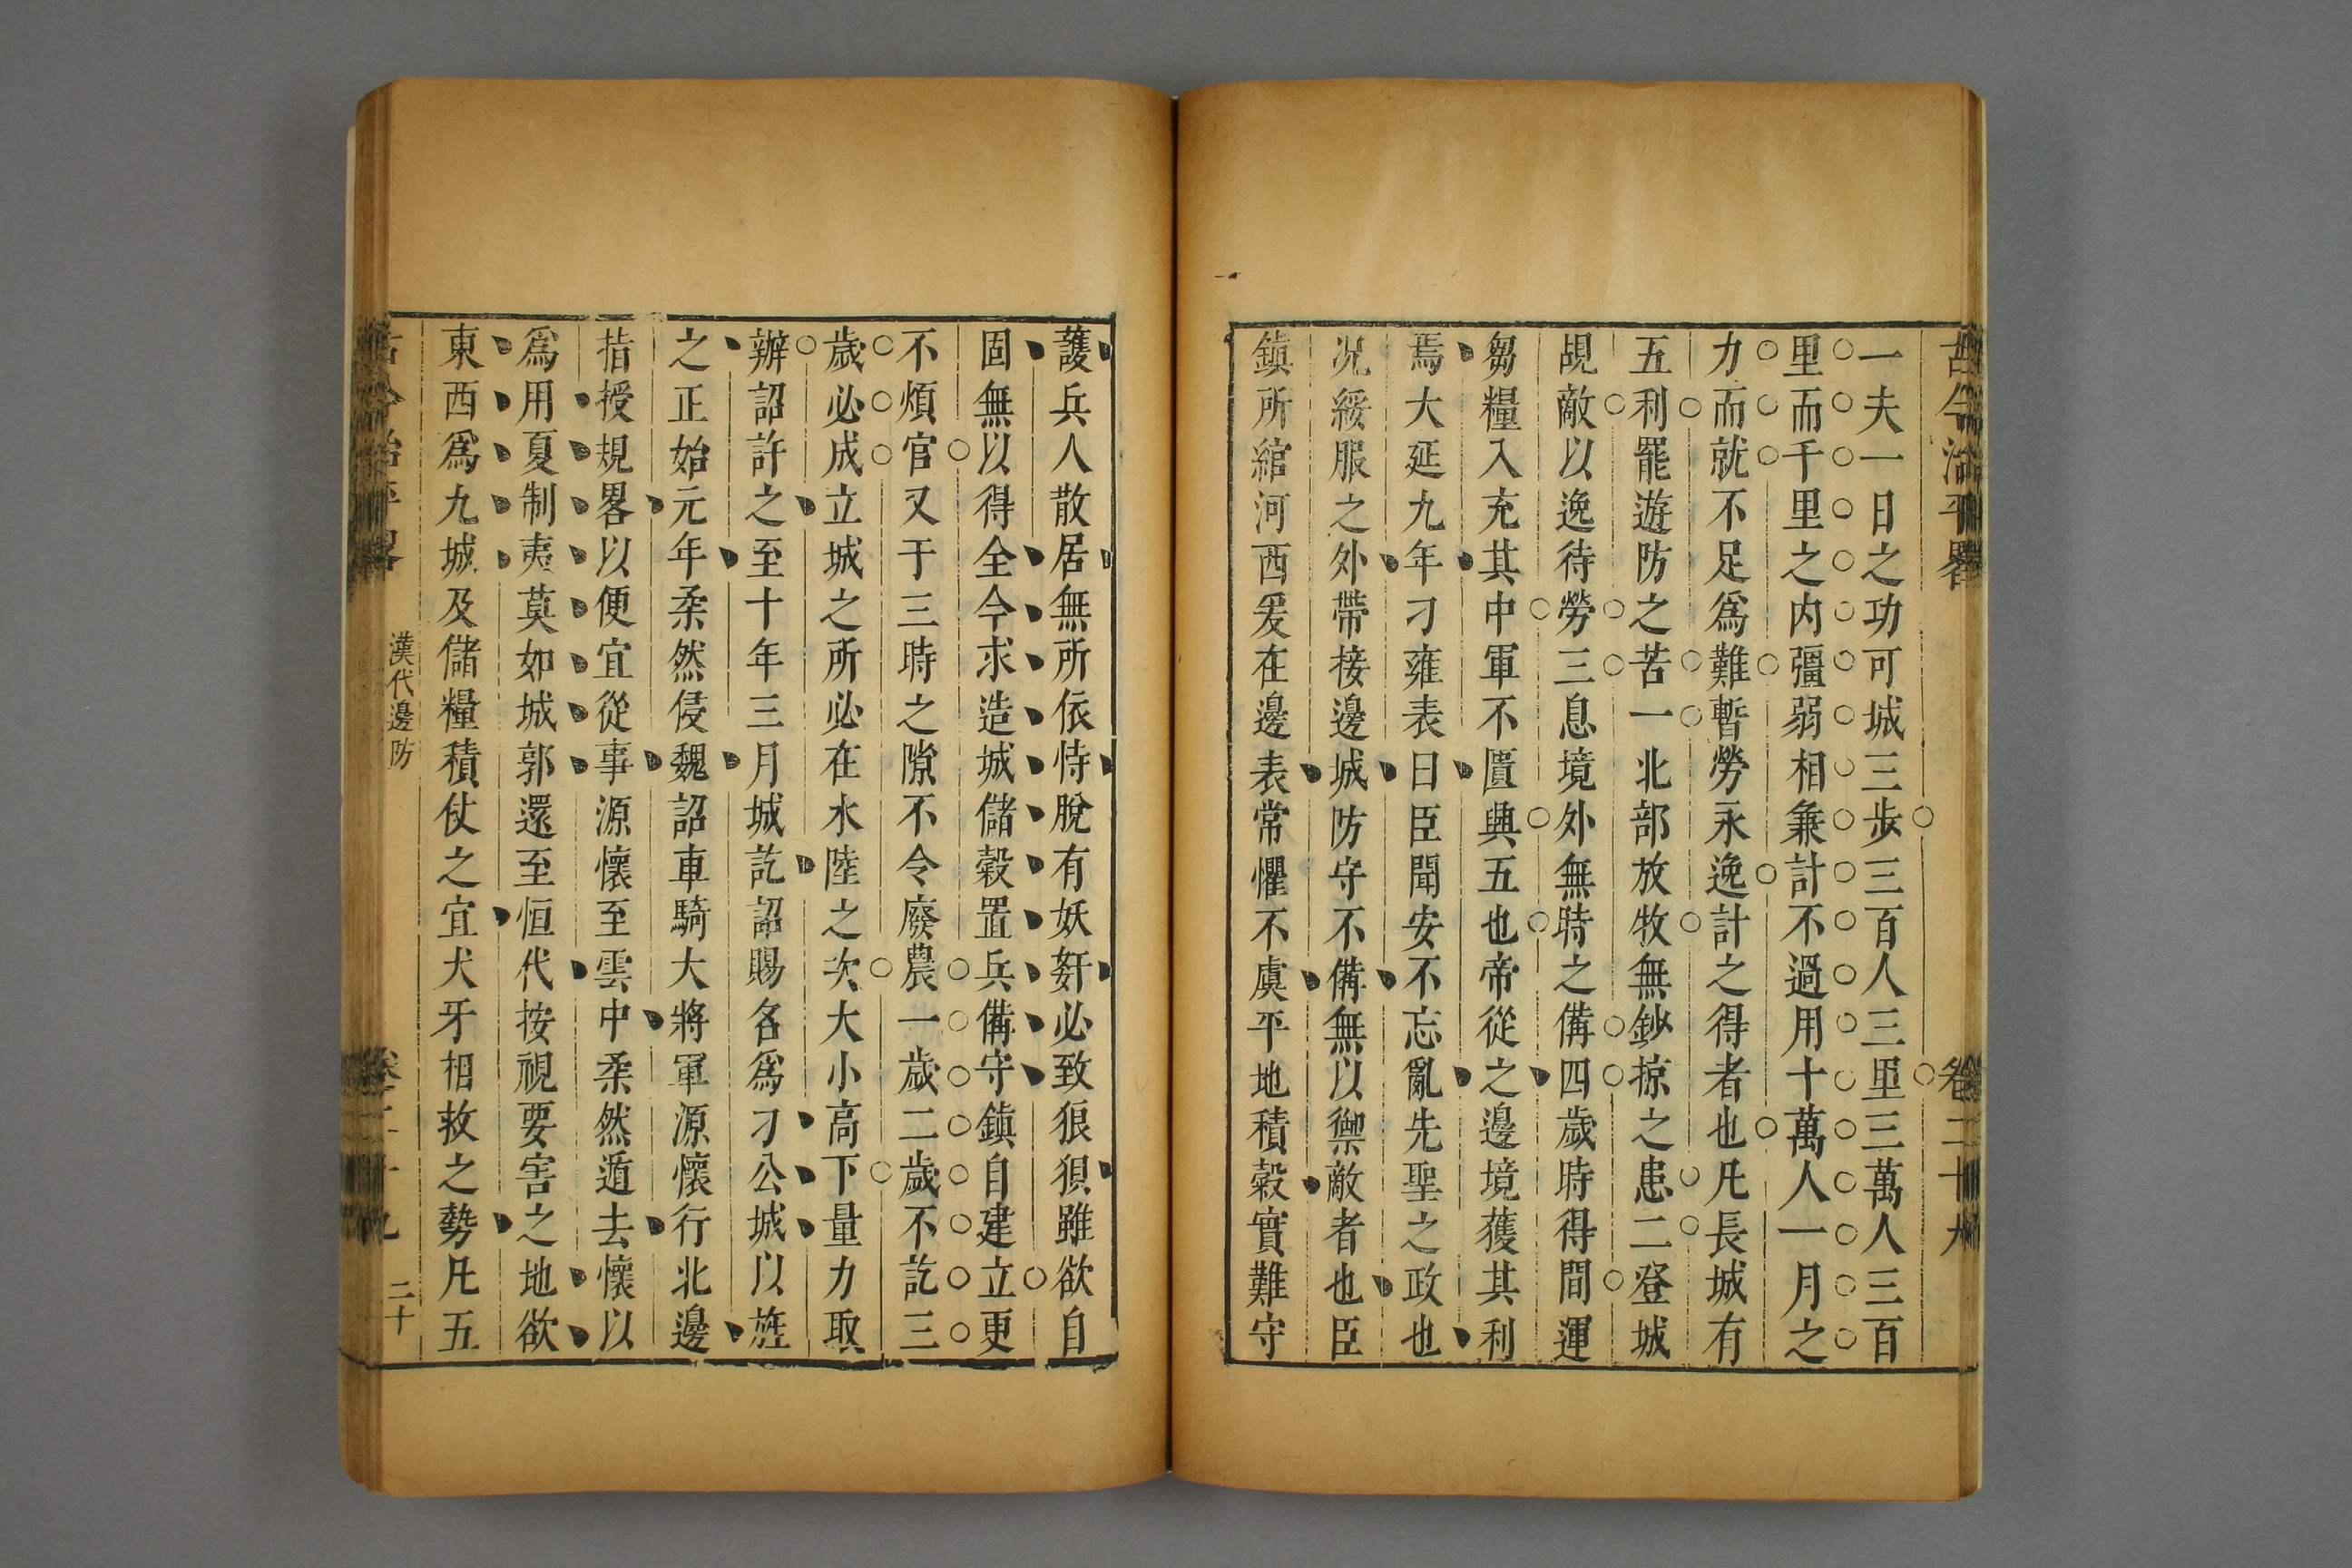 古今治平畧 卷二十九
一夫一日之功可城三步三百人三里三萬人三百
里而千里之内彊弱相兼計不過用十萬人一月之
力而就不足爲難暫勞永逸計之得者也凡長城有
五利罷遊防之苦一北部放牧無鈔掠之患二登城
覘敵以逸待勞三息境外無時之備四歲時得間運
芻糧入充其中軍不匱興五也帝從之邊境獲其利
焉大延九年刁雍表曰臣聞安不忘亂先聖之政也
况綏服之外帶接邊城防守不備無以禦敵者也臣
鎮所綰河西爰在邊表常懼不虞平地積穀實難守
護兵人散居無所依恃脫有妖奸必致狼狽雖欲自
固無以得全今求造城儲穀置兵備守鎮自建立更
不煩官又于三時之隙不令廢農一歲二歲不訖三
歲必成立城之所必在水陸之次大小高下量力取
辦詔許之至十年三月城訖詔賜名爲刁公城以旌
之正始元年柔然侵魏詔車騎大將軍源懷行北邊
指授規畧以便宜從事源懷至雲中柔然遁去懷以
爲用夏制夷莫如城郭還至恒代按視要害之地欲
東西爲九城及儲糧積仗之宜犬牙相救之勢凡五
古今治平畧 漢代邊防 卷二十九 二十